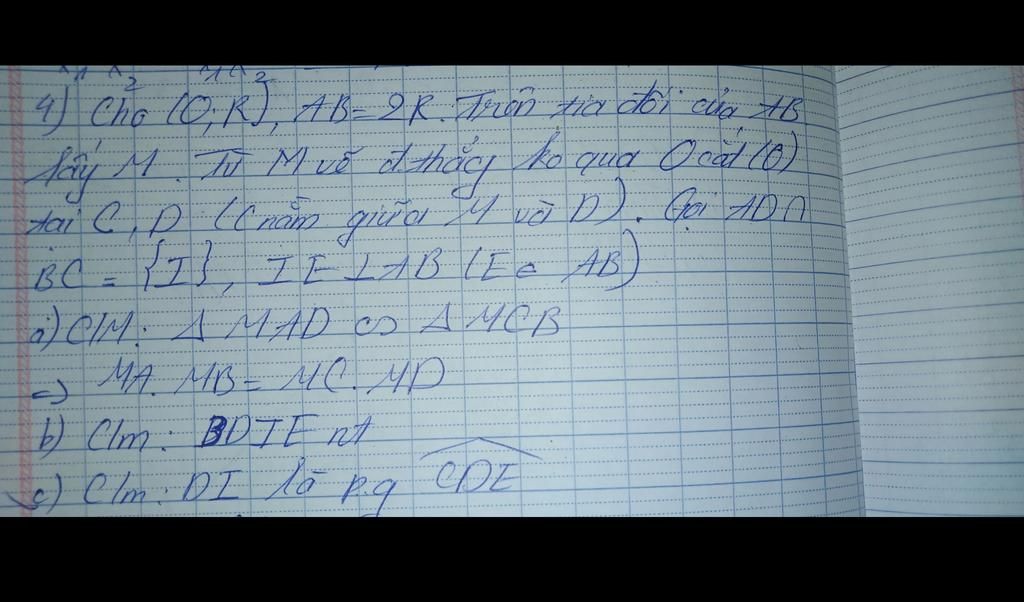 4) Cho (O; R), AB = 2R. Trên tia đối của AB
lấy M. Từ M vẽ đthẳg ko qua O cắt (O)
tại C, D (C nằm giữa M và D). Gọi AD ∩
BC = {I}, IE ⊥ AB (E ∈ AB)
a) C/M: Δ MAD ∽ Δ MCB
=> MA. MB = MC. MD
b) C/m: BDIE nt
c) C/m: DI là p.g \widehat{CDE}